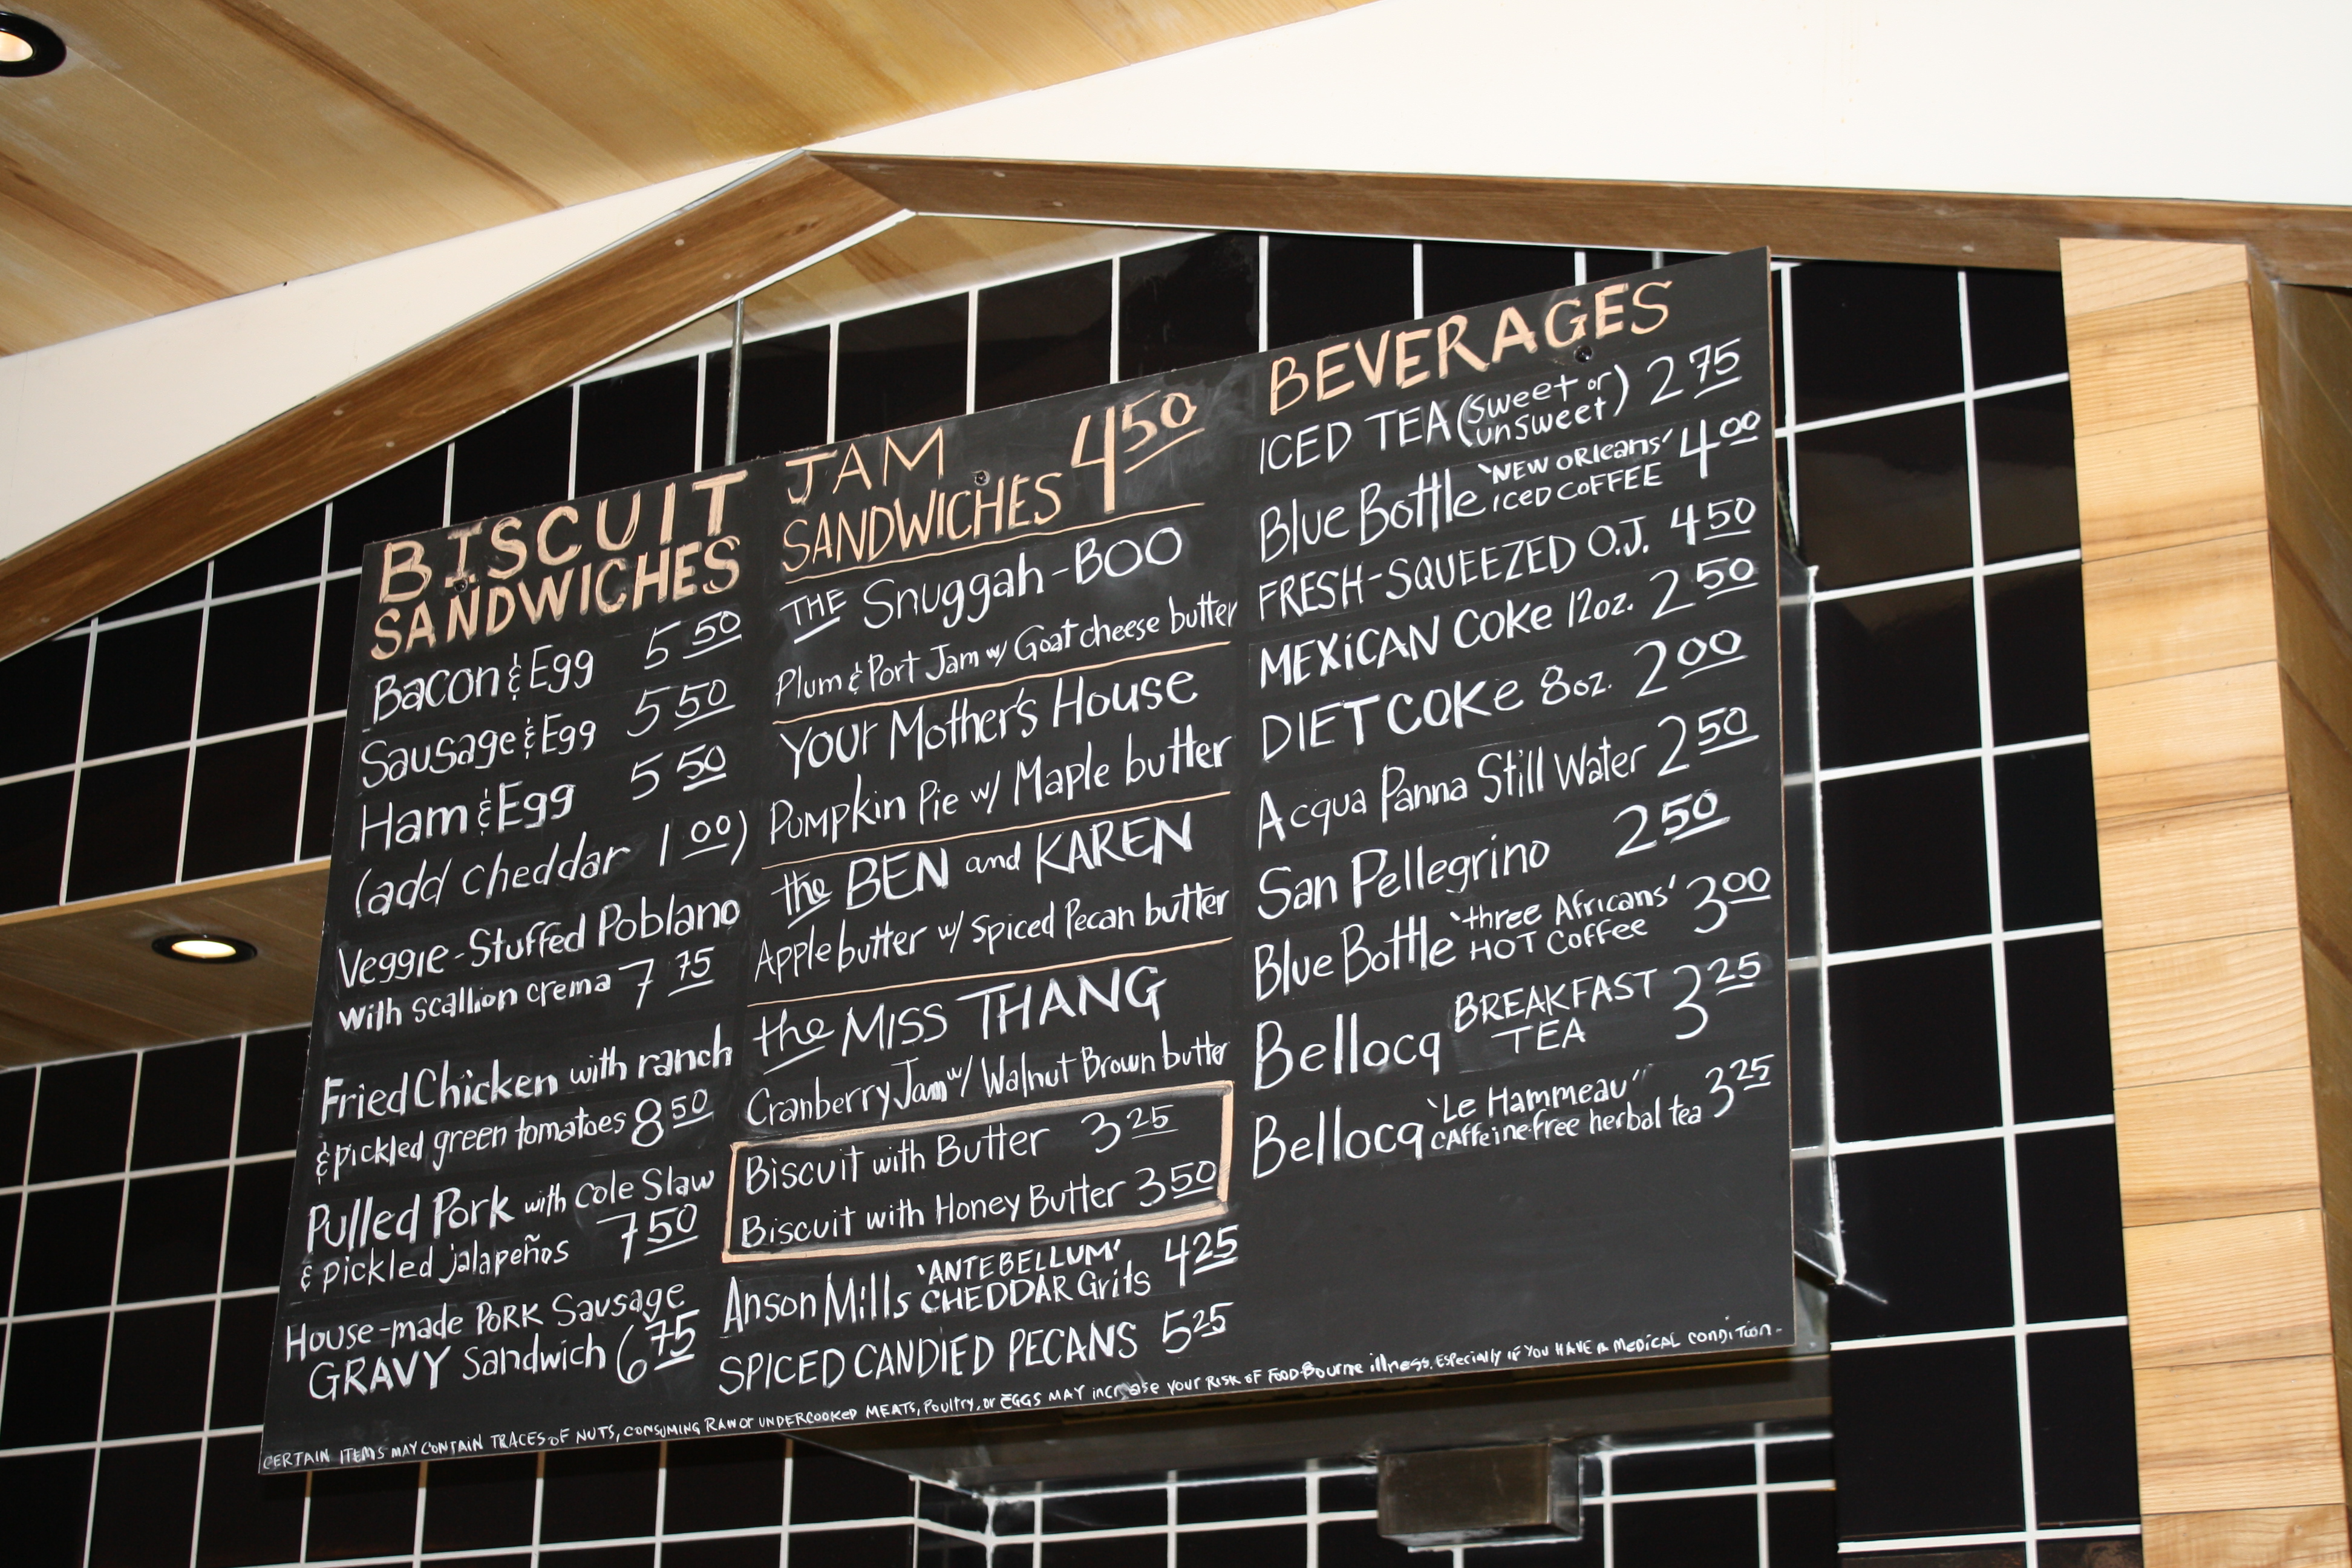 BISCUIT
SANDWICHES
Bacon & Egg 5 50
Sausage & Egg 5 50
Ham & Egg 5 50
(add cheddar 1 00)
Veggie-Stuffed Poblano
with scallion crema 7 75
Fried Chicken with ranch
& pickled green tomatoes 8 50
Pulled Pork with Cole Slaw
& pickled jalapeños 7 50
House-made PORK Sausage
GRAVY Sandwich 6 75
JAM
SANDWICHES 4 50
THE Snuggah-BOO
Plum & Port Jam w/ Goat cheese butter
YOUR Mother's House
Pumpkin Pie w/ Maple butter
the BEN and KAREN
Apple butter w/ Spiced Pecan butter
the MISS THANG
Cranberry Jam w/ Walnut Brown butter
Biscuit with Butter 3 25
Biscuit with Honey Butter 3 50
Anson Mills 'ANTEBELLUM' CHEDDAR Grits 4 25
SPICED CANDIED PECANS 5 25
BEVERAGES
ICED TEA (sweet or unsweet) 2 75
Blue Bottle 'NEW ORleans' ICED COFFEE 4 00
FRESH-SQUEEZED O.J. 4 50
MEXiCAN COKe 12oz. 2 50
DIET COKe 8oz. 2 00
Acqua Panna Still Water 2 50
San Pellegrino 2 50
Blue Bottle 'three Africans' HOT Coffee 3 00
Bellocq BREAKFAST TEA 3 25
Bellocq 'Le Hammeau' cAffeine free herbal tea 3 25
CERTAIN ITEMS MAY CONTAIN TRACES OF NUTS, CONSUMING RAW or UNDERCOOKED MEATS, Poultry, or EGGS MAY increase YOUR RISK OF FOOD-Bourne illness. Especially if YOU HAVE A MEDICAL CONDITION-